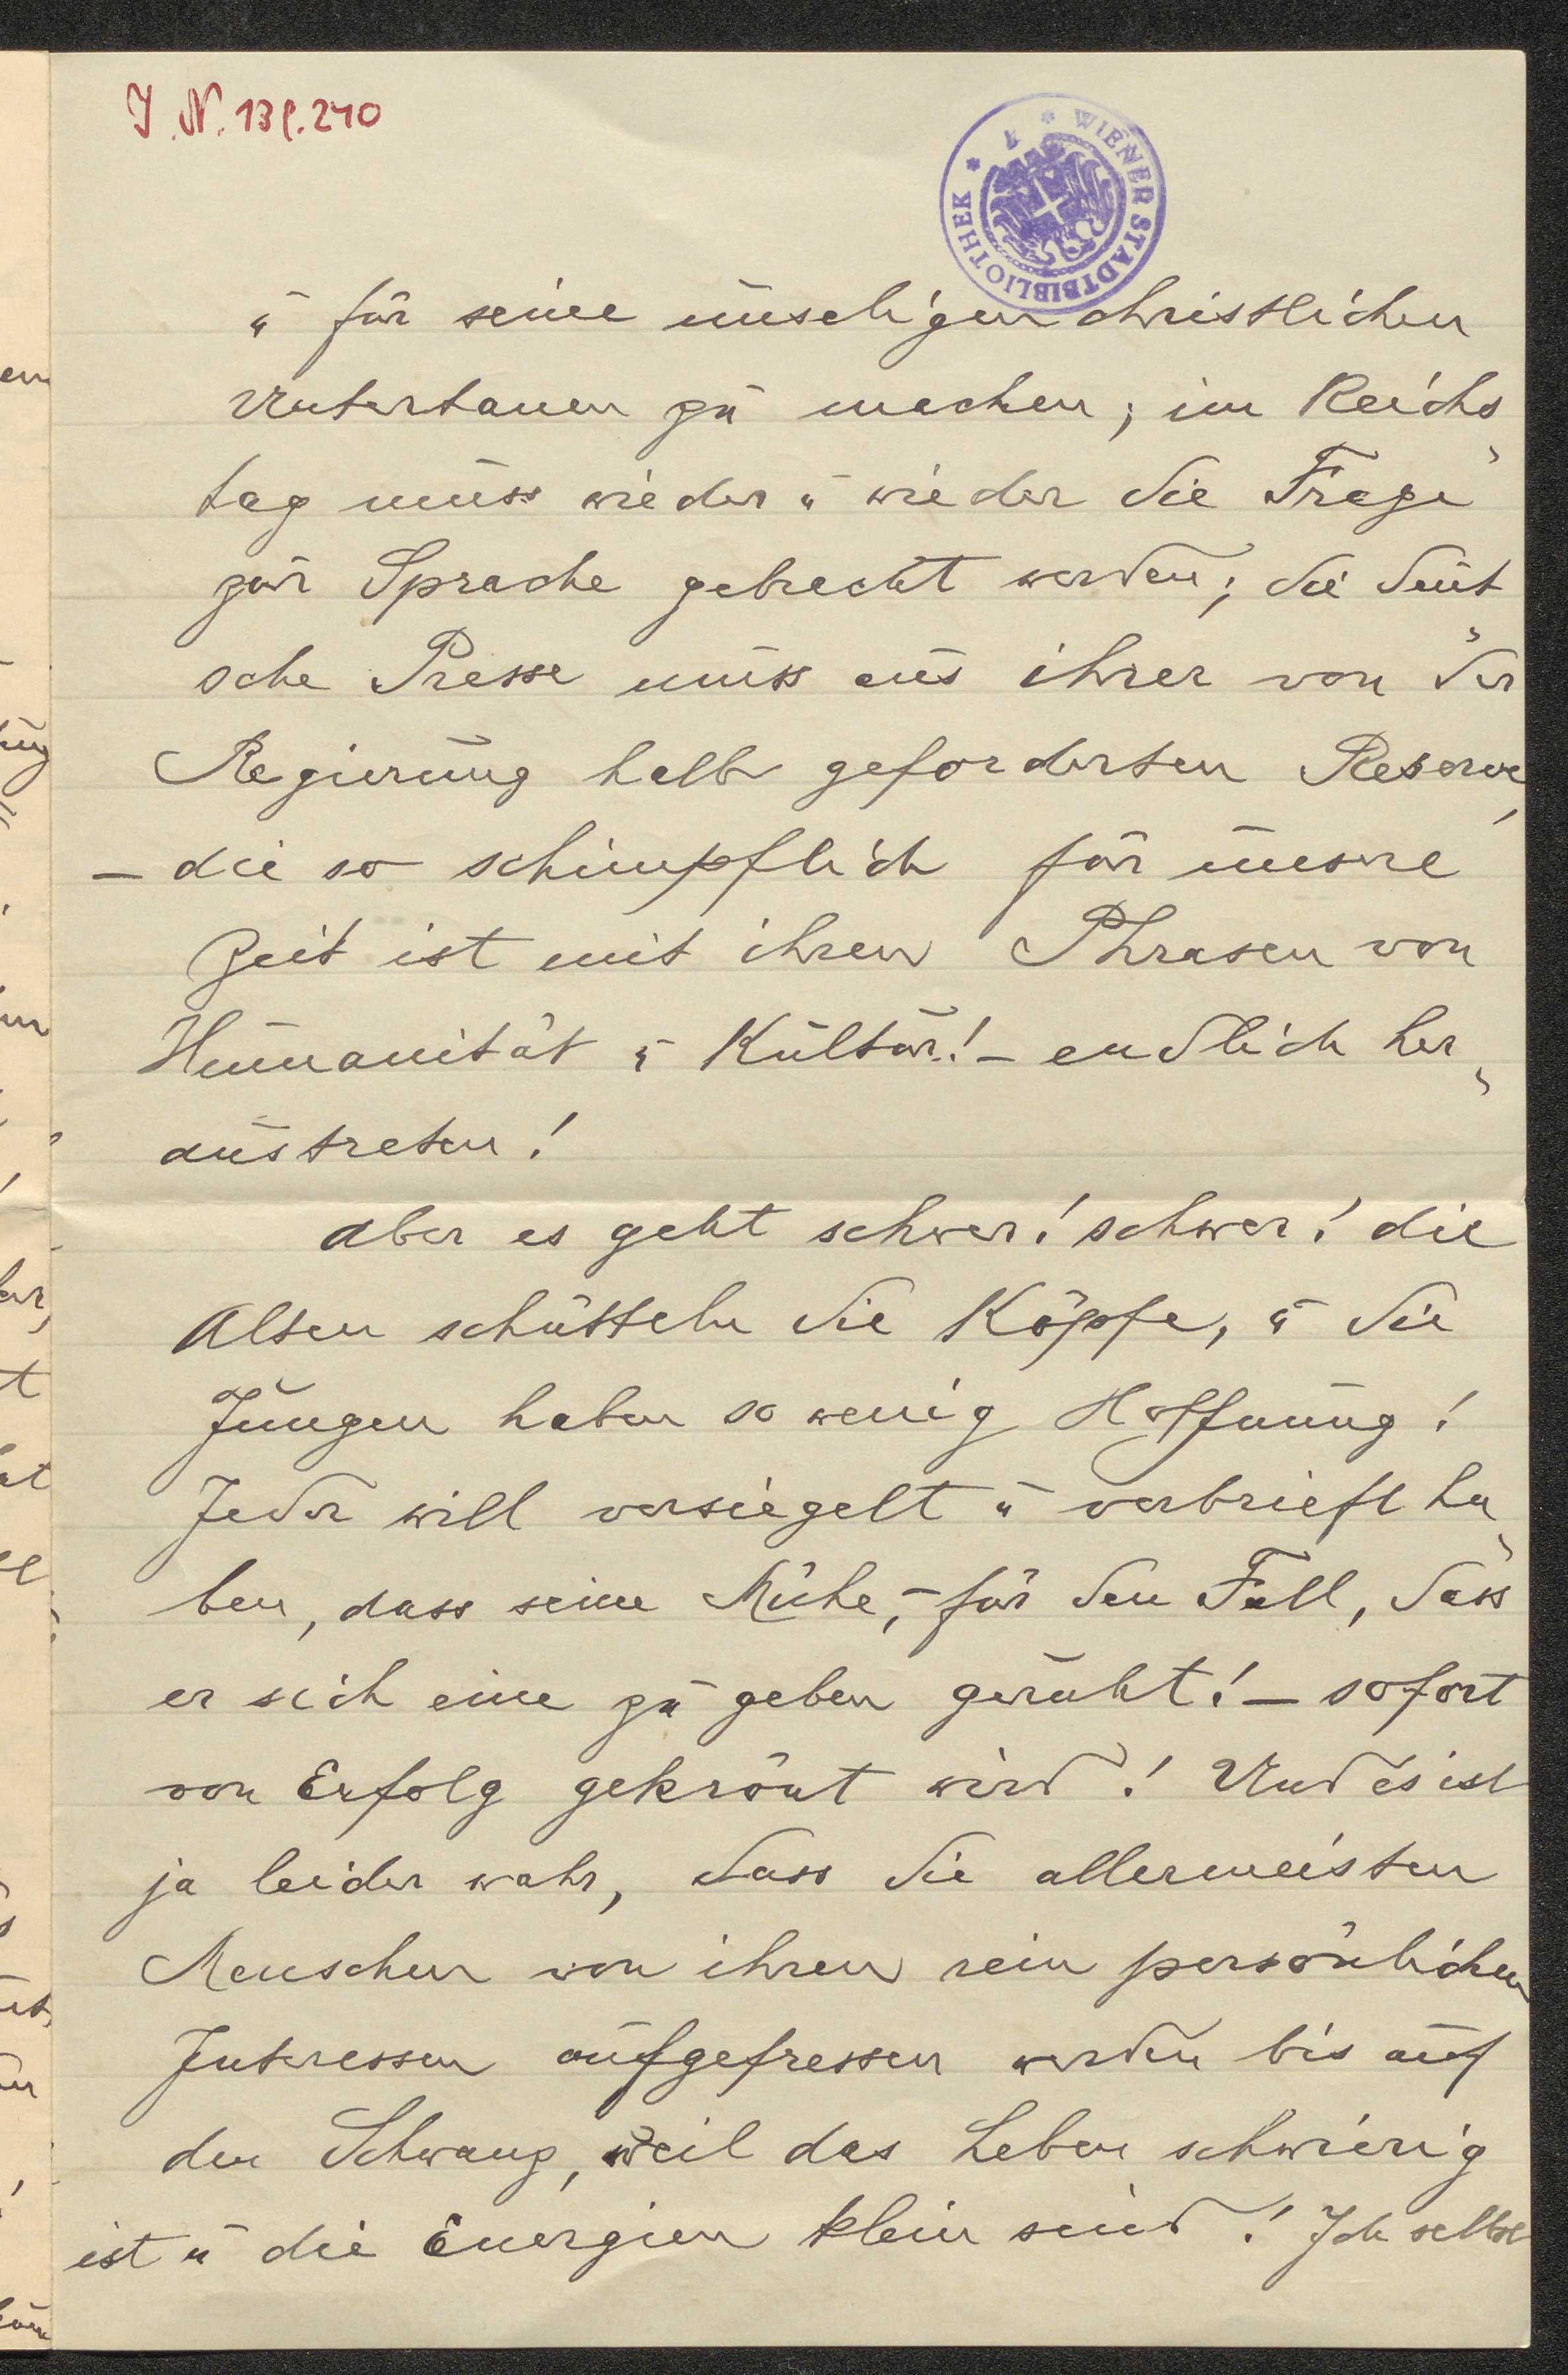 J. N. 138.240
WIENER STADTBIBLIOTHEK
u für seine unseligen christlichen
Untertanen zu machen; im Reichs-
tag muss wieder u wieder die Frage
zur Sprache gebracht werden; die deut-
sche Presse muss aus ihrer von der
Regierung halb geforderten Reserve,
– die so schimpflich für unsere
Zeit ist mit ihren Phrasen von
Humanität u Kultur! – endlich her-
austreten!
Aber es geht schwer! schwer! die
Alten schütteln die Köpfe, u die
Jungen haben so wenig Hoffnung!
Jeder will versiegelt u verbrieft ha-
ben, dass seine Mühe, – für den Fall, dass
er sich eine zu geben geruht! – sofort
von Erfolg gekrönt wird! Und es ist
ja leider wahr, dass die allermeisten
Menschen von ihren rein persönlichen
Interessen aufgefressen werden bis auf
den Schwanz, weil das Leben schwierig
ist u die Energien klein sind! Ich selbst